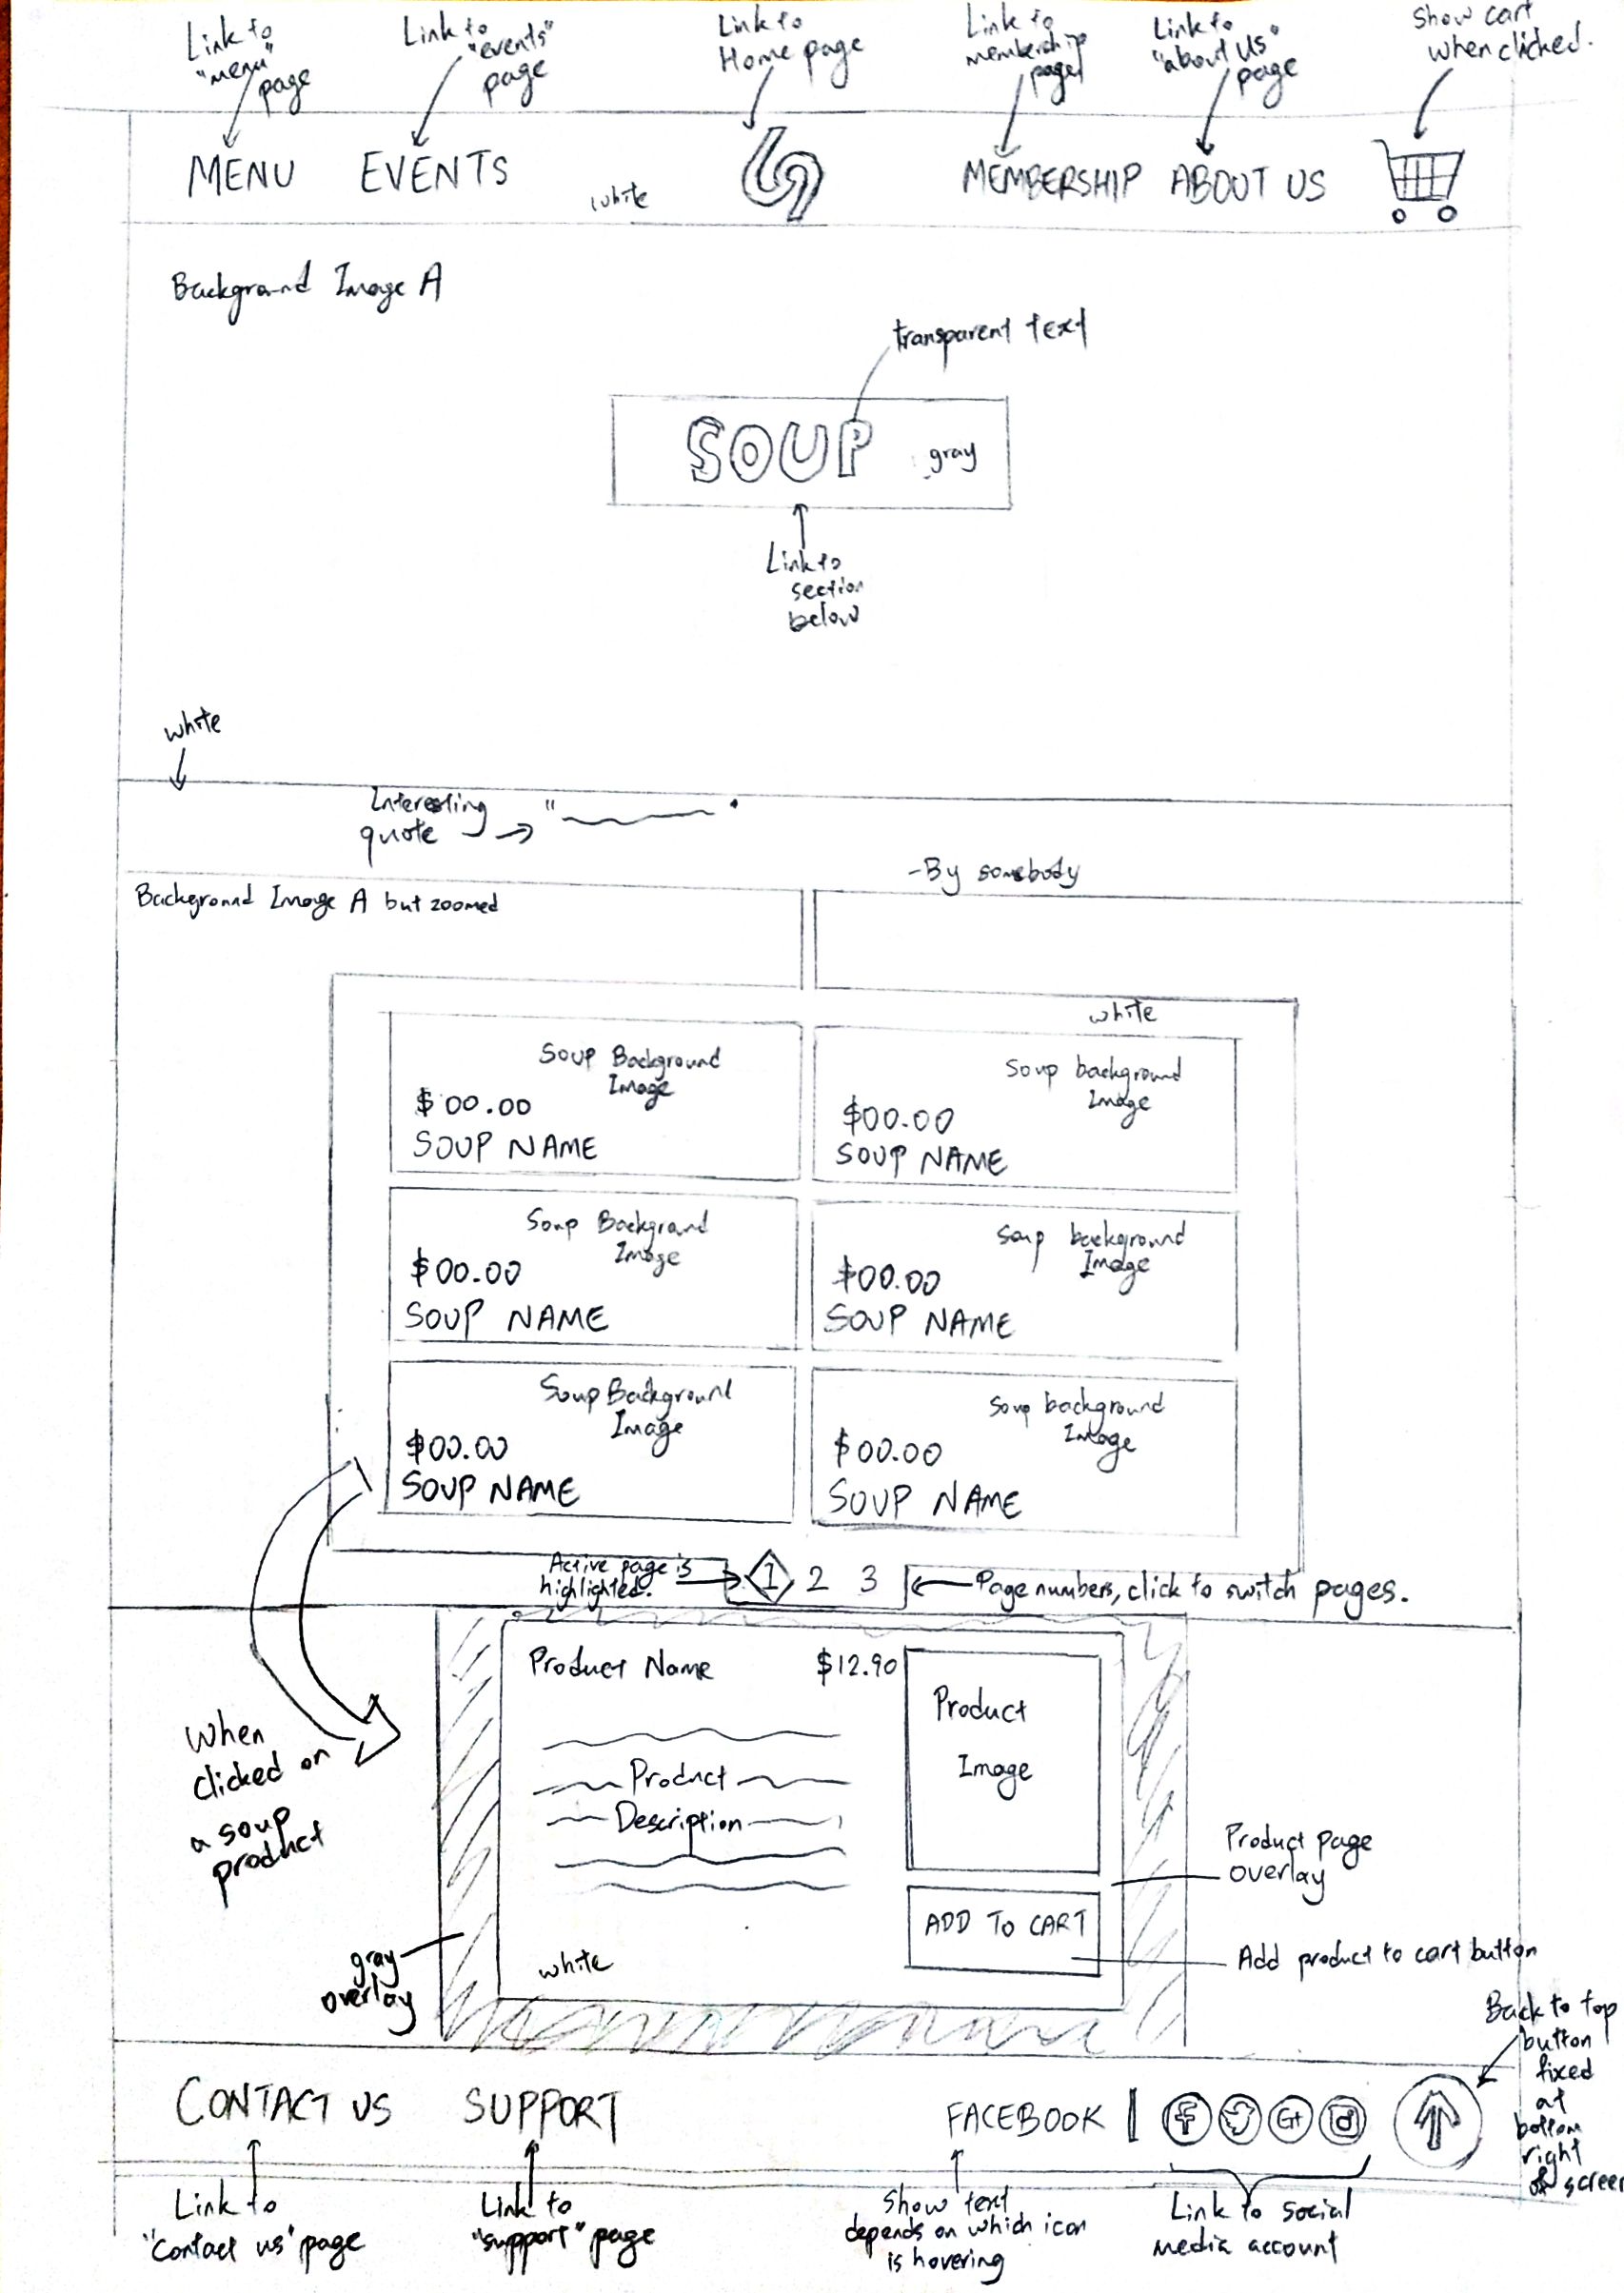 Link to
"menu"
page
Link to
"events"
page
Link to
Home page
Link to
membership
page
Link to
"about Us"
page
Show cart
when clicked.
MENU
EVENTS
white
MEMBERSHIP
ABOUT US
Background Image A
transparent text
SOUP
gray
Link to
section
below
white
Interesting
quote
"
-By somebody
Background Image A but zoomed
white
Soup Background
Image
$00.00
SOUP NAME
Soup background
Image
$00.00
SOUP NAME
Soup Background
Image
$00.00
SOUP NAME
Soup background
Image
$00.00
SOUP NAME
Soup Background
Image
$00.00
SOUP NAME
Soup background
Image
$00.00
SOUP NAME
Active page is
highlighted.
1 2 3
Page numbers, click to switch pages.
Product Name
$12.90
Product
Image
Product
Description
ADD TO CART
white
When
clicked on
a soup
product
gray
overlay
Product page
overlay
Add product to cart button
Back to top
button
fixed
at
bottom
right
of screen
CONTACT US
SUPPORT
FACEBOOK |
f
G+
Link to
"Contact us" page
Link to
"support" page
Show text
depends on which icon
is hovering
Link to social
media account